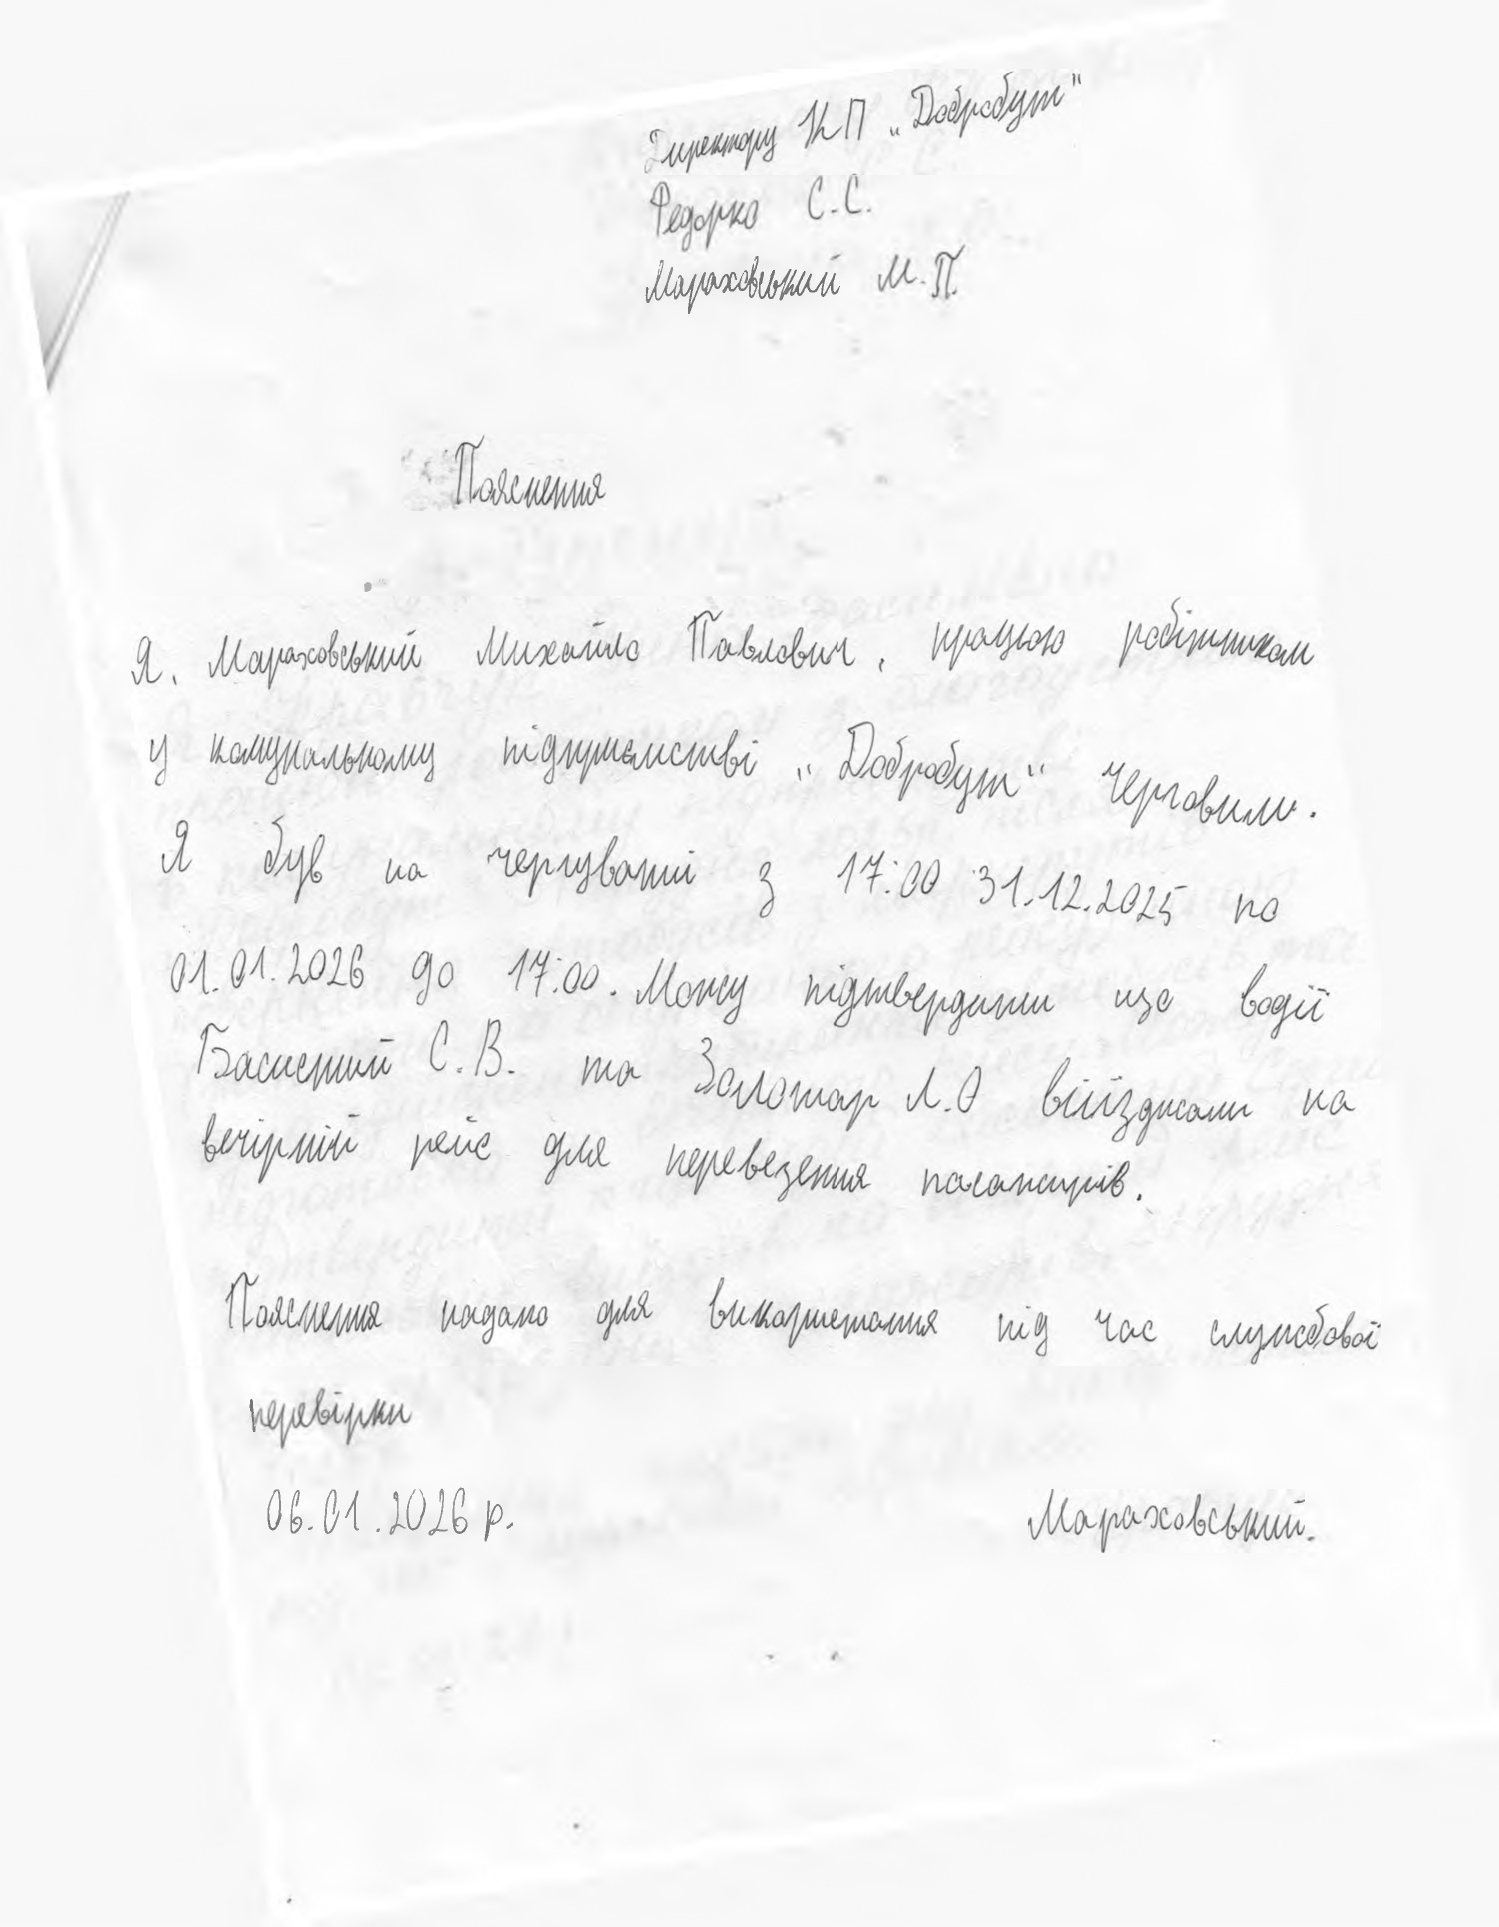 Директору КП „Добробут"
Федорко С.С.
Мараховський М.П.
Пояснення
Я, Мараховський Михайло Павлович, працюю робітником
у комунальному підприємстві „Добробут" черговим.
Я був на чергуванні з 17:00 31.12.2025 по
01.01.2026 до 17:00. Можу підтвердити що водії
С.В. та Золотар Л.О виїзджали на
вечірній рейс для перевезення пасажирів.
Пояснення надано для використання під час службової
перевірки
06.01.2026 р. Мараховський.